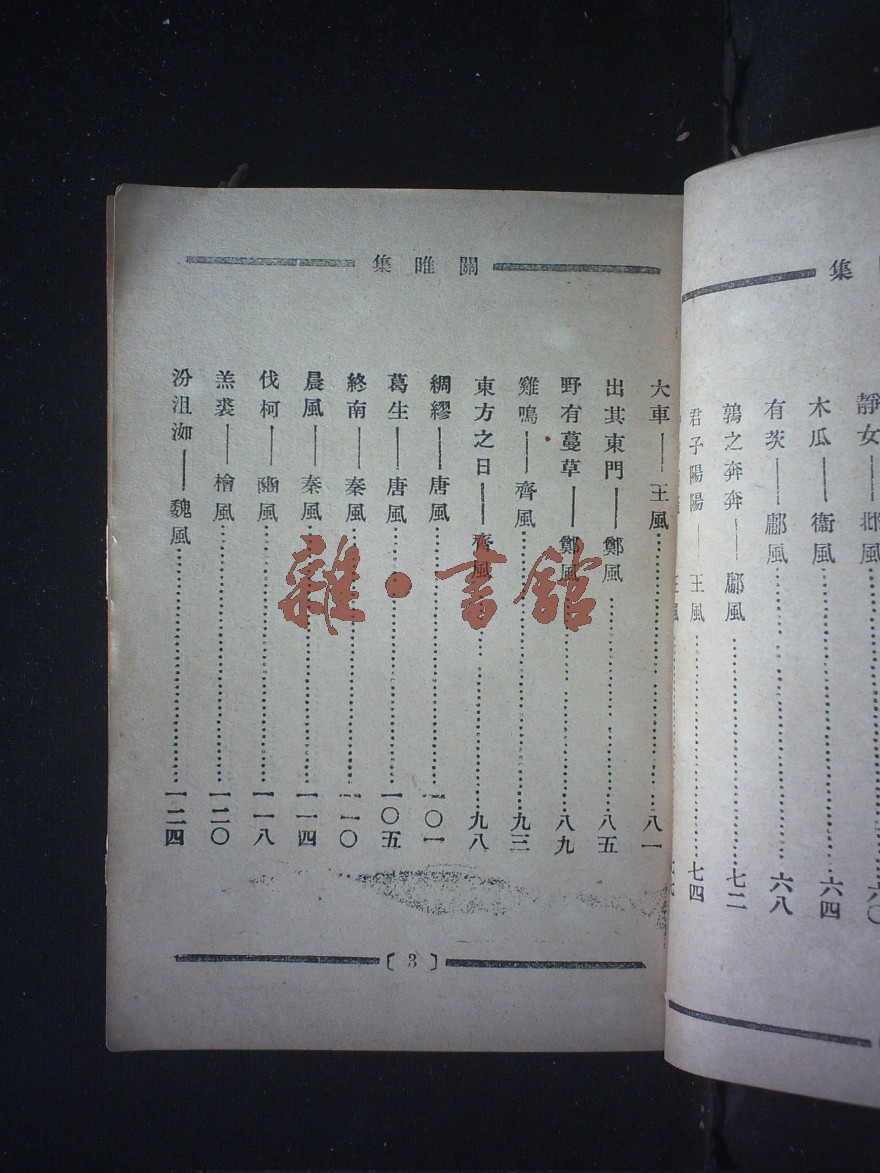 集
靜女——邶風……六〇
木瓜——衞風……六四
有茨——鄘風……六八
鶉之奔奔——鄘風……七二
君子陽陽——王風……七四
王風
關雎集
大車——王風……八一
出其東門——鄭風……八五
野有蔓草——鄭風……八九
雞鳴——齊風……九三
東方之日——齊風……九八
綢繆——唐風……一〇一
葛生——唐風……一〇五
終南——秦風……一一〇
晨風——秦風……一一四
伐柯——豳風……一一八
羔裘——檜風……一二〇
汾沮洳——魏風……一二四
〔3〕
雜·書館